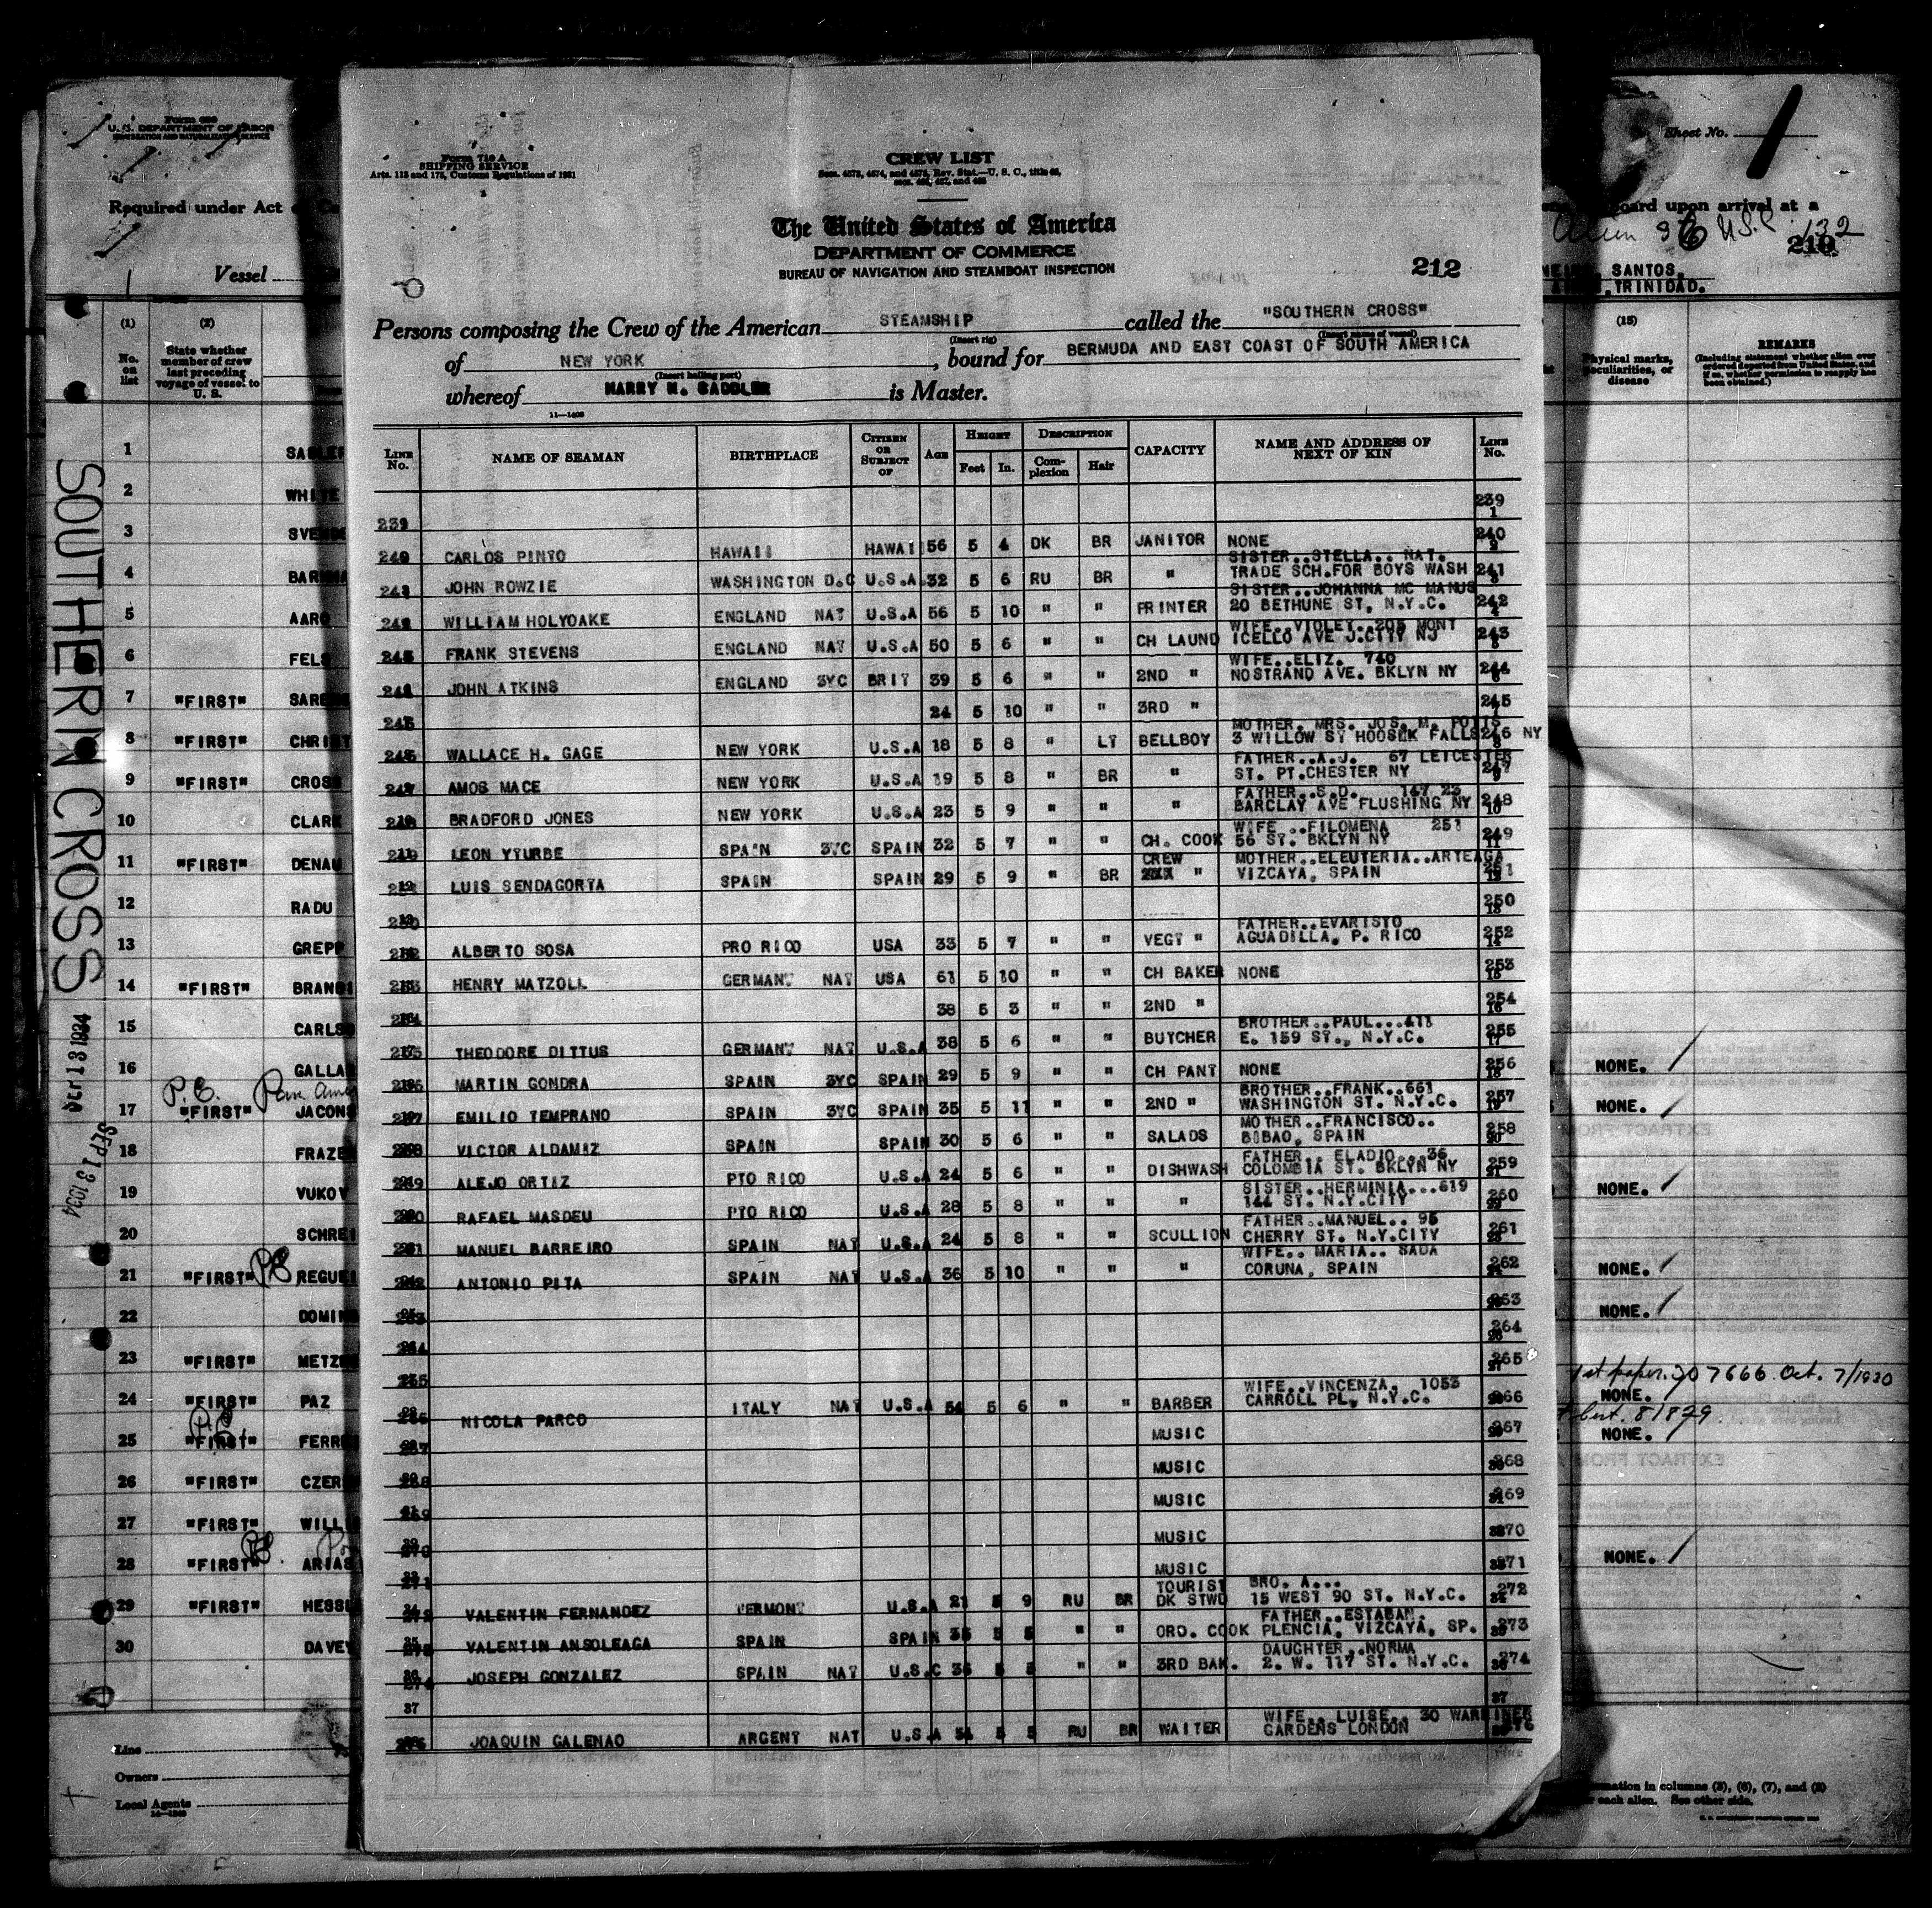 Form 710 A
SHIPPING SERVICE
Arts. 113 and 175, Customs Regulations of 1931
CREW LIST
Secs. 4573, 4574, and 4575, Rev. Stat.—U. S. C., title 46,
The United States of America
DEPARTMENT OF COMMERCE
BUREAU OF NAVIGATION AND STEAMBOAT INSPECTION
212
Persons composing the Crew of the American STEAMSHIP called the "SOUTHERN CROSS"
(Insert rig) (Insert name of vessel)
of NEW YORK, bound for BERMUDA AND EAST COAST OF SOUTH AMERICA
(Insert hailing port)
whereof HARRY N. SADDLER is Master.
LINE No. NAME OF SEAMAN BIRTHPLACE CITIZEN OR SUBJECT OF AGE HEIGHT Feet In. DESCRIPTION Complexion Hair CAPACITY NAME AND ADDRESS OF NEXT OF KIN LINE No.
239 239 1
240 CARLOS PINTO HAWAII HAWAI 56 5 4 DK BR JANITOR NONE 240
241 JOHN ROWZIE WASHINGTON D.C U.S.A. 32 5 6 RU BR " SISTER..STELLA.. NAT. TRADE SCH.FOR BOYS WASH 241
242 WILLIAM HOLYOAKE ENGLAND NAT U.S.A 56 5 10 " " PRINTER SISTER..JOHANNA MC MANUS 20 BETHUNE ST, N.Y.C. 242
243 FRANK STEVENS ENGLAND NAT U.S.A 50 5 6 " " CH LAUND WIFE..VIOLET..205 MONT ICELLO AVE J.CITY NJ 243
244 JOHN ATKINS ENGLAND 3YC BRIT 39 5 6 " " 2ND " WIFE..ELIZ. 740 NOSTRAND AVE. BKLYN NY 244
245 24 5 10 " " 3RD " 245
246 WALLACE H. GAGE NEW YORK U.S.A 18 5 8 " LT BELLBOY MOTHER. MRS. JOS. M. POTTS 3 WILLOW ST HOOSEK FALLS 246 NY
247 AMOS MACE NEW YORK U.S.A 19 5 8 " BR " FATHER..A.J. 67 LEICESTER ST. PT.CHESTER NY 247
248 BRADFORD JONES NEW YORK U.S.A 23 5 9 " " " FATHER..S.D. 147 23 BARCLAY AVE FLUSHING NY 248
249 LEON YTURBE SPAIN 3YC SPAIN 32 5 7 " " CH. COOK WIFE ..FILOMENA 251 56 ST. BKLYN NY 249
LUIS SENDAGORTA SPAIN SPAIN 29 5 9 " BR CREW " MOTHER..ELEUTERIA..ARTEAGA VIZCAYA, SPAIN 251
250 250
252 ALBERTO SOSA PRO RICO USA 33 5 7 " " VEGT " FATHER..EVARISTO AGUADILLA, P. RICO 252
253 HENRY MATZOLL GERMANY NAT USA 61 5 10 " " CH BAKER NONE 253
254 38 5 3 " " 2ND " 254
255 THEODORE DITTUS GERMANY NAT U.S.A 38 5 6 " " BUTCHER BROTHER..PAUL...411 E. 159 ST., N.Y.C. 255
256 MARTIN GONDRA SPAIN 3YC SPAIN 29 5 9 " " CH PANT NONE 256
257 EMILIO TEMPRANO SPAIN 3YC SPAIN 35 5 11 " " 2ND " BROTHER..FRANK..661 WASHINGTON ST. N.Y.C. 257
258 VICTOR ALDAMIZ SPAIN SPAIN 30 5 6 " " SALADS MOTHER..FRANCISCO.. BIBAO, SPAIN 258
259 ALEJO ORTIZ PTO RICO U.S.A 24 5 6 " " DISHWASH FATHER.. ELADIO...36 COLOMBIA ST. BKLYN NY 259
260 RAFAEL MASDEU PTO RICO U.S.A 28 5 8 " " " SISTER..HERMINIA...619 144 ST. N.Y.CITY 260
261 MANUEL BARREIRO SPAIN NAT U.S.A 24 5 8 " " SCULLION FATHER..MANUEL.. 95 CHERRY ST. N.Y.CITY 261
262 ANTONIO PITA SPAIN NAT U.S.A 36 5 10 " " " WIFE.. MARIA.. SADA CORUNA, SPAIN 262
263 263
264 264
265 265
266 NICOLA PARCO ITALY NAT U.S.A 54 5 6 " " BARBER WIFE..VINCENZA, 1053 CARROLL PL, N.Y.C. 266
267 MUSIC 267
268 MUSIC 268
269 MUSIC 269
270 MUSIC 270
271 MUSIC 271
272 VALENTIN FERNANDEZ VERMONT U.S.A 21 5 9 RU BR TOURIST DK STWD BRO. A... 15 WEST 90 ST. N.Y.C. 272
273 VALENTIN ANSOLEAGA SPAIN SPAIN 35 5 5 " " ORD. COOK FATHER..ESTABAN. PLENCIA, VIZCAYA, SP. 273
274 JOSEPH GONZALEZ SPAIN NAT U.S.C 36 5 " " 3RD BAK. DAUGHTER..NORMA 2. W. 117 ST. N.Y.C. 274
37 37
JOAQUIN GALENAO ARGENT NAT U.S.A 5 RU BR WAITER WIFE.. LUISE.. 30 GARDENS LONDON
U. S. DEPARTMENT OF LABOR
Required under Act
Vessel
(1) No. on list
(2) State whether member of crew last preceding voyage of vessel to U. S.
1
2 WHITE
3
4
5
6 FELS
7 "FIRST"
8 "FIRST"
9 "FIRST" CROSS
10 CLARK
11 "FIRST" DENAU
12 RADU
13 GREPP
14 "FIRST"
15 CARLS
16 GALLA
P.E.
17 "FIRST" JACONS
18 FRAZE
19 VUKOV
20 SCHRE
21 "FIRST" REGUE
22 DOMI
23 "FIRST" METZ
24 "FIRST" PAZ
25 "FIRST" FERR
26 "FIRST" CZER
27 "FIRST" WILL
28 "FIRST" ARIAS
29 "FIRST" HESS
30 DAVEY
Line
Owners
Local Agents
SOUTHERN CROSS
SEP 13 1934
Sheet No. 1
board upon arrival at a
132
SANTOS,
TRINIDAD.
(15)
Physical marks, peculiarities, or disease
REMARKS
(Including statement whether alien ever ordered deported from United States, and if so, whether permission to reapply has been obtained.)
NONE.
NONE.
NONE.
NONE.
NONE.
1st paper. 207666 Oct. 7/1930
NONE.
81879
NONE.
NONE.
information in columns (3), (6), (7), and (8)
each alien. See other side.